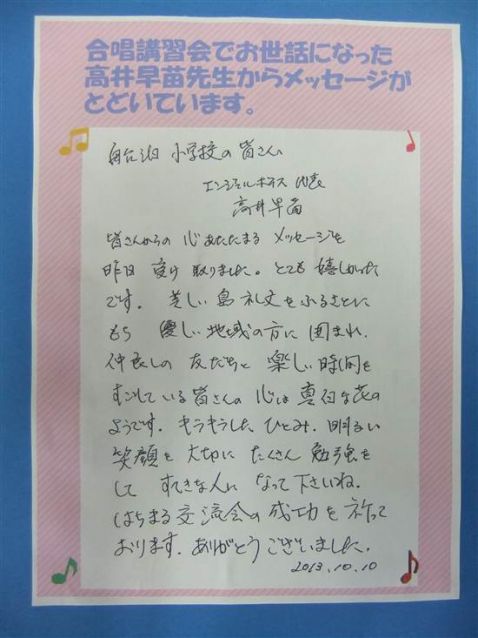 合唱講習会でお世話になった
高井早苗先生からメッセージが
とどいています。
船泊 小学校の皆さんへ
エンジェルボイス 代表
高井早苗
皆さんからの 心あたたまる メッセージを
昨日 受け取りました。とても 嬉しかった
です。美しい 島 礼文を ふるさとに
もち 優しい 地域の方に 囲まれ、
仲良しの 友だちと 楽しい 時間を
すごしている 皆さんの 心は 真白な 花の
ようです。キラキラした ひとみ、明るい
笑顔を 大切に たくさん 勉強を
して すてきな人に なって下さいね。
はちまる 交流会の 成功を 祈って
おります。ありがとうございました。
2013.10.10